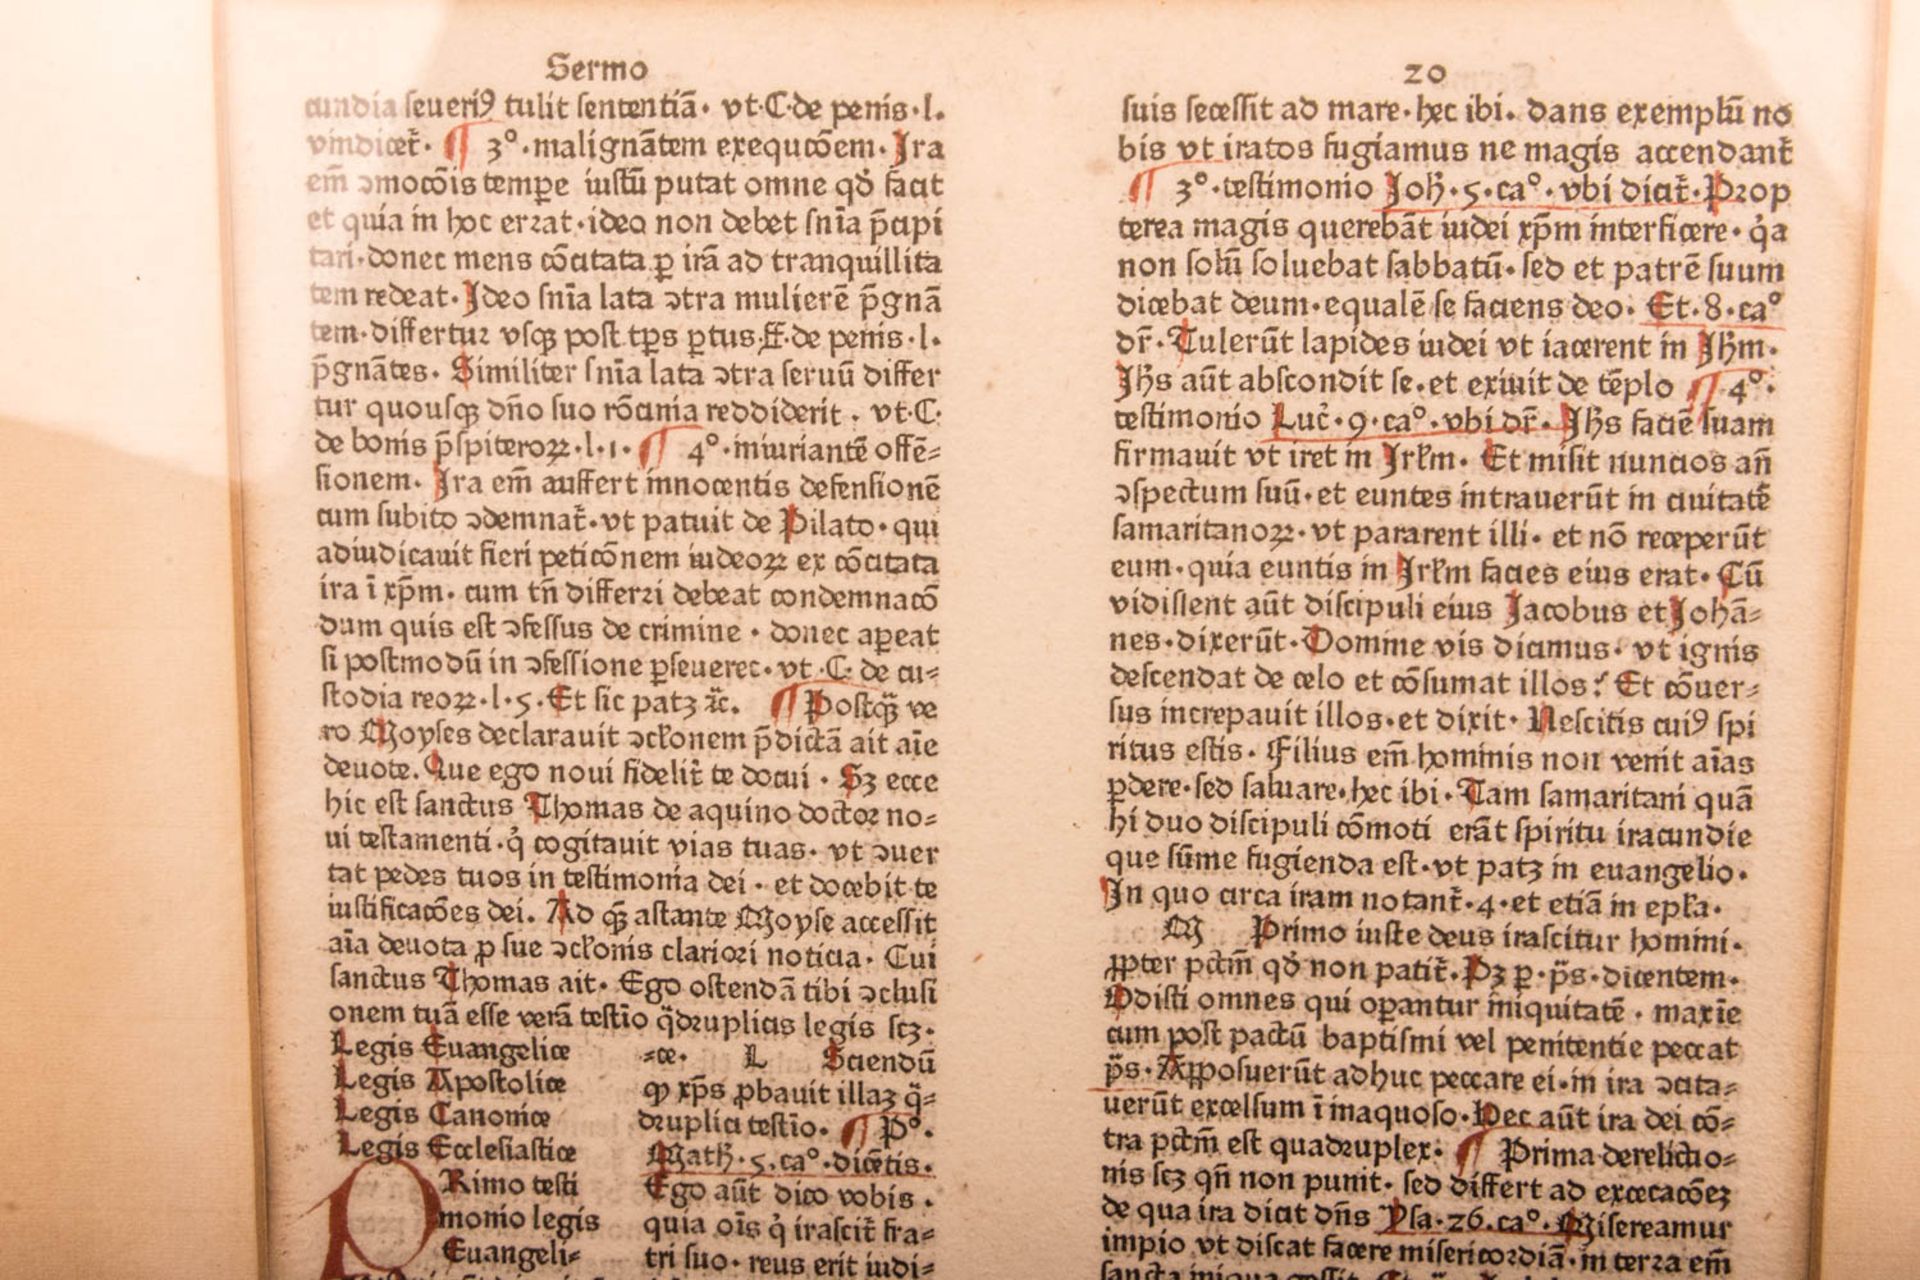 Sermo
cundia seueriꝰ tulit sententiā· vt·C·de penis·l.
vindicet̄· ¶ 3°·malignātem exequcōem· Ira
em̄ ɔmocōis tempe iustū putat omne qd̓ facit
et quia in hoc errat·ideo non debet snīa p̄cipi
tari·donec mens cōcitata ꝑ irā ad tranquillita
tem redeat·Ideo snīa lata ɔtra mulierē p̄gnā
tem·differtur vsqꝫ post tp̄s ꝑtus·ff·de penis·l·
p̄gnātes· Similiter snīa lata ɔtra seruū differ
tur quousqꝫ dn̄o suo rōcinia reddiderit· vt·C·
de bonis p̄spiteroꝝ·l·1·¶ 4°·iniuriantē offē⸗
sionem· Ira em̄ auffert innocentis defensionē
cum subito ɔdemnat̄·vt patuit de Pilato·qui
adiudicauit fieri peticōnem iudeoꝝ ex cōcitata
ira ī xp̄m· cum tn̄ differri debeat condemnacō
dum quis est ɔfessus de crimine· donec aꝑeat
si postmodū in ɔfessione ꝑseueret·vt·C·de cu⸗
stodia reoꝝ·l·5·Et sic patꝫ ⁊c̄. ¶ Postqꝫ̄ ve
ro Moyses declarauit ɔcłonem p̄dictā ait aīe
deuote. Que ego noui fidelit̄ te docui· Sꝫ ecce
hic est sanctus Thomas de aquino doctor no⸗
ui testamenti·q̓ cogitauit vias tuas· vt ɔuer
tat pedes tuos in testimonia dei· et docebit te
iustificacōes dei. Ad qꝫ̄ astante Moyse accessit
aīa deuota ꝓ sue ɔcłonis clariori noticia· Cui
sanctus Thomas ait· Ego ostendā tibi ɔclusi
onem tuā esse verā testīo q̄druplicis legis scꝫ·
Legis Euangelice
Legis Apostolice
Legis Canonice
Legis Ecclesiastice
PRimo testi
monio legis
Euangeli⸗
⸗ce· L Sciendū
ꝙ xp̄s ꝓbauit illaꝫ q̄⸗
druplici testīo· ¶ P°·
Math̄·5·ca°·dicētis·
Ego aūt dico vobis·
quia oīs q̓ irascit̄ fra⸗
tri suo·reus erit iudi⸗
20
suis secessit ad mare·hec ibi· dans exemplū no
bis vt iratos fugiamus ne magis accendant̄
¶ 3°·testimonio Joh̄·5·ca°·vbi dicit̄·Prop
terea magis querebāt iudei xp̄m interficere·q̓a
non solū soluebat sabbatū·sed et patrē suum
dicebat deum·equalē se faciens deo· Et·8·ca°
dr̄·Tulerūt lapides iudei vt iacerent in Jhm̄·
Jhs̄ aūt abscondit se·et exiuit de tēplo ¶ 4°·
testimonio Luc̄·9·ca°·vbi dr̄·Jhs̄ faciē suam
firmauit vt iret in Jrłm· Et misit nuncios an̄
ɔspectum suū·et euntes intrauerūt in ciuitatē
samaritanoꝝ·vt pararent illi·et nō receperūt
eum·quia euntis in Jrłm facies eius erat·Cū
vidissent aūt discipuli eius Jacobus et Johā⸗
nes·dixerūt·Domine vis dicimus·vt ignis
descendat de celo et cōsumat illos? Et cōuer⸗
sus increpauit illos·et dixit·Nescitis cuiꝰ spi
ritus estis· Filius em̄ hominis non venit aīas
ꝑdere·sed saluare·hec ibi·Tam samaritani quā
hi duo discipuli cōmoti erāt spiritu iracundie
que sūme fugienda est·vt patꝫ in euangelio·
In quo circa iram notant̄·4·et etiā in epła·
M Primo iuste deus irascitur homini·
ꝓpter pctm̄ qd̓ non patit̄·Pꝫ ꝑ·p̄s·dicentem·
Odisti omnes qui oꝑantur iniquitatē· maxīe
cum post pactū baptismi vel penitentie peccat
p̄s·Apposuerūt adhuc peccare ei·in ira ɔcita⸗
uerūt excelsum ī inaquoso·Hec aūt ira dei cō⸗
tra pctm̄ est quadruplex· ¶ Prima·derelictio⸗
nis scꝫ qn̄ non punit· sed differt ad excecacōeꝫ
de qua ira dicit dn̄s Psa·26·ca°·Misereamur
impio vt discat facere misericordiā·in terra em̄